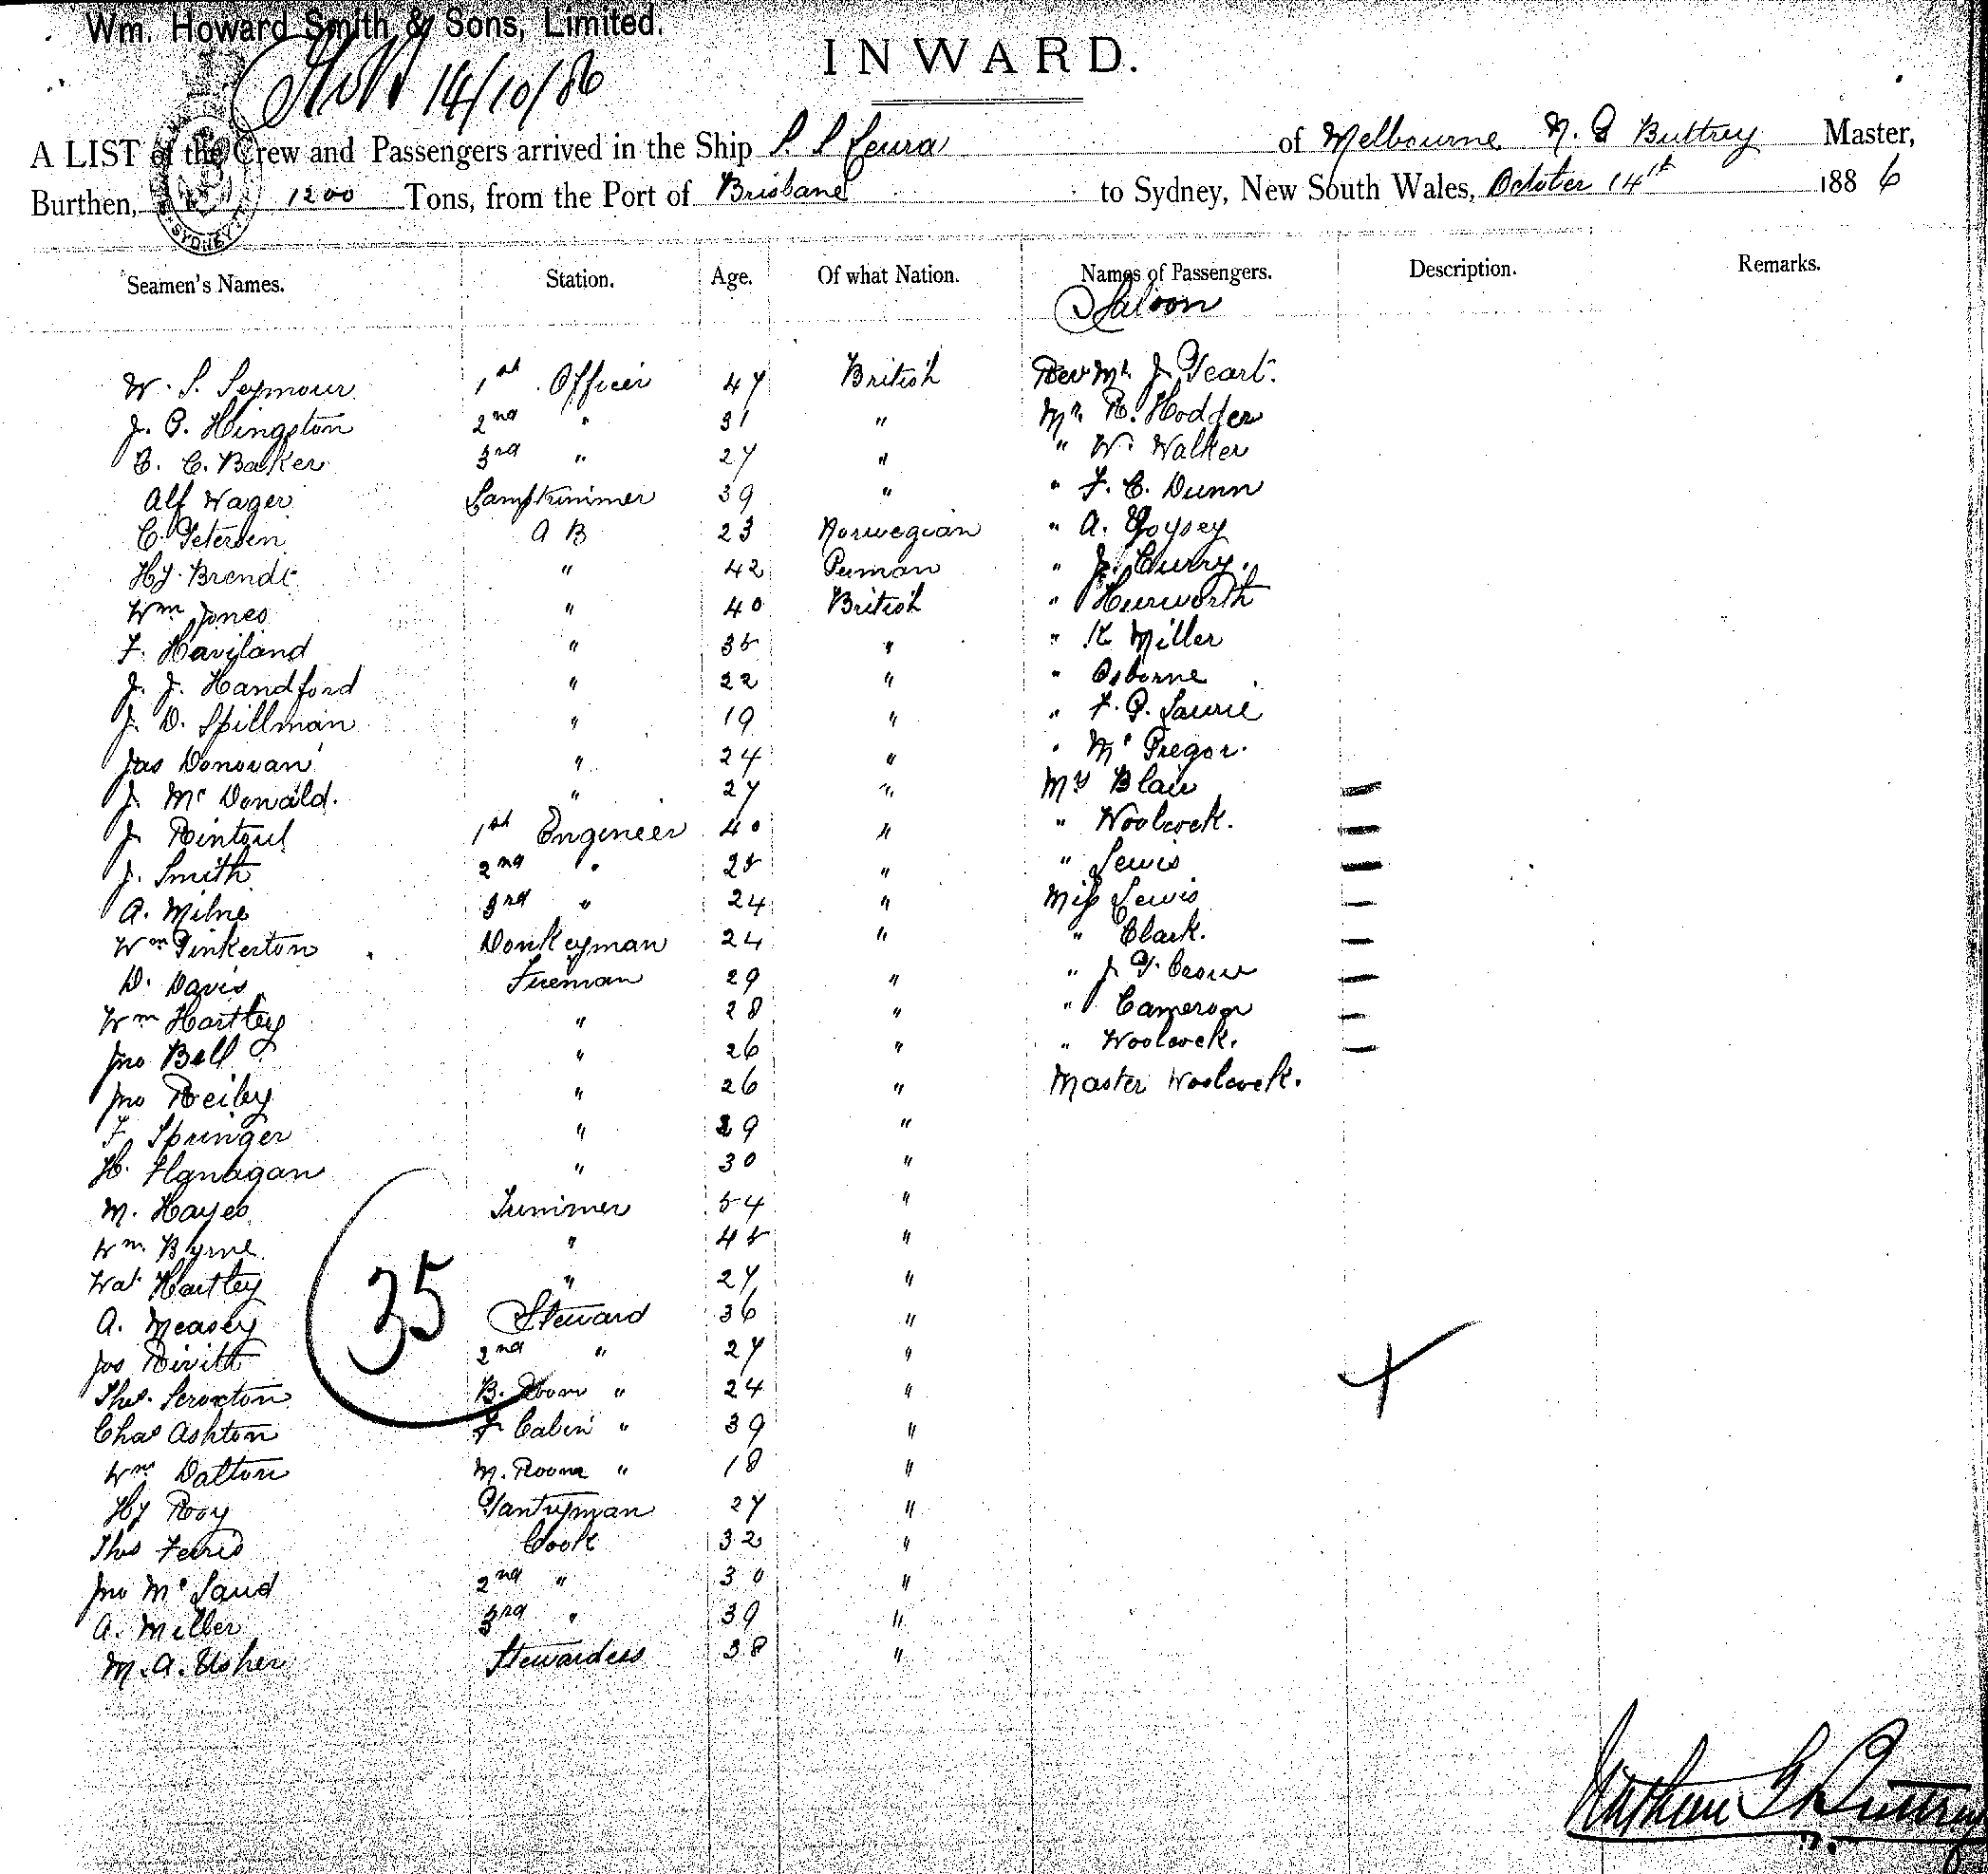 Wm. Howard Smith & Sons, Limited.
INWARD.
14/10/86
A LIST of the Crew and Passengers arrived in the Ship S. S Leura of Melbourne N. G Buttrey Master,
Burthen, 1200 Tons, from the Port of Brisbane to Sydney, New South Wales, October 14th 1886
SYDNEY
Seamen's Names. Station. Age. Of what Nation. Names of Passengers. Description. Remarks.
Saloon
W. S. Seymour 1st Officer 47 British Rev Mr J. Teart.
J. P. Hingston 2nd " 31 " Mr R. Hodger
C. C. Baker 3rd " 27 " " W. Walker
Alf Wager Lamptrimmer 39 " " F. C. Dunn
C. Petersen A B 23 Norwegian " A.
Hy. Brendt " 42 " J. Curry.
Wm Jones " 40 British " Hurworth
F. Haviland " 35 " " K Miller
J. J. Handford " 22 " " Osborne
J. D. Spillman " 19 " " F. P. Laurie
Jas Donovan " 24 " " Mc Gregor.
J. Mc Donald. " 27 " Mrs Blair —
J. Rintoul 1st Engineer 40 " " Woolcock. —
J. Smith 2nd " 25 " " Lewis —
A. Milne 3rd " 24 " Miss Lewis —
Wm Pinkerton Donkeyman 24 " " Clark. —
D. Davis Fireman 29 " " J. T. —
Wm Hartley " 28 " " Cameron —
Jno Bell " 26 " " Woolcock. —
Jno Reiley " 26 " Master Woolcock.
F Springer " 29 "
H. Flanagan " 30 "
M. Hayes Trimmer 54 "
Wm Byrne " 45 "
Wat Hartley " 27 "
35
A. Measey Steward 36 "
Jos 2nd " 27 "
Thos. Scroxton B. Room " 24 "
Chas Ashton F Cabin " 39 "
Wm Dalton M. Room " 18 "
Hy Roy Pantryman 27 "
Thos Ferris Cook 32 "
Jno Mc Laud 2nd " 30 "
A. Miller 3rd " 39 "
M. A. Usher Stewardess 38 "
Nathan G Buttrey